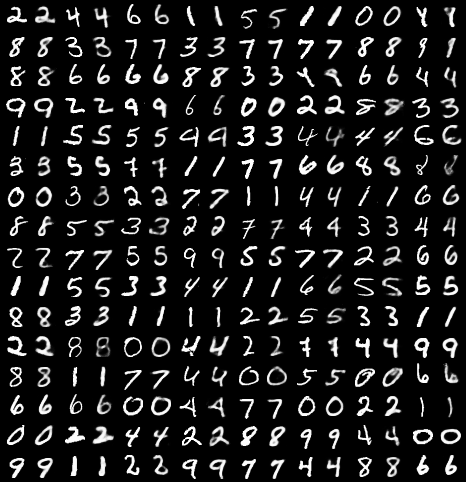 2 2 4 4 6 6 1 1 5 5 1 1 0 0
8 8 3 3 7 7 3 3 7 7 7 7 8 8 9 9
8 8 6 6 6 6 8 8 3 3 6 6 4 4
9 9 2 2 9 9 6 6 0 0 2 2 8 8 3 3
1 1 5 5 5 5 9 9 3 3 4 4 4 4 6 6
3 3 5 5 7 7 1 1 7 7 6 6 8 8 8 8
0 0 3 3 2 2 7 7 1 1 4 4 1 1 6 6
8 8 5 5 3 3 2 2 7 7 4 4 3 3 4 4
2 2 7 7 5 5 9 9 5 5 7 7 2 2 6 6
1 1 5 5 3 3 4 4 1 1 6 6 5 5 5 5
8 8 3 3 1 1 1 1 2 2 5 5 3 3 1 1
2 2 8 8 0 0 4 4 2 2 7 7 4 4 9 9
8 8 1 1 7 7 4 4 0 0 5 5 0 0 6 6
6 6 6 6 0 0 4 4 7 7 0 0 2 2 1 1
0 0 2 2 4 4 2 2 8 8 9 9 4 4 0 0
9 9 1 1 2 2 9 9 7 7 4 4 8 8 6 6